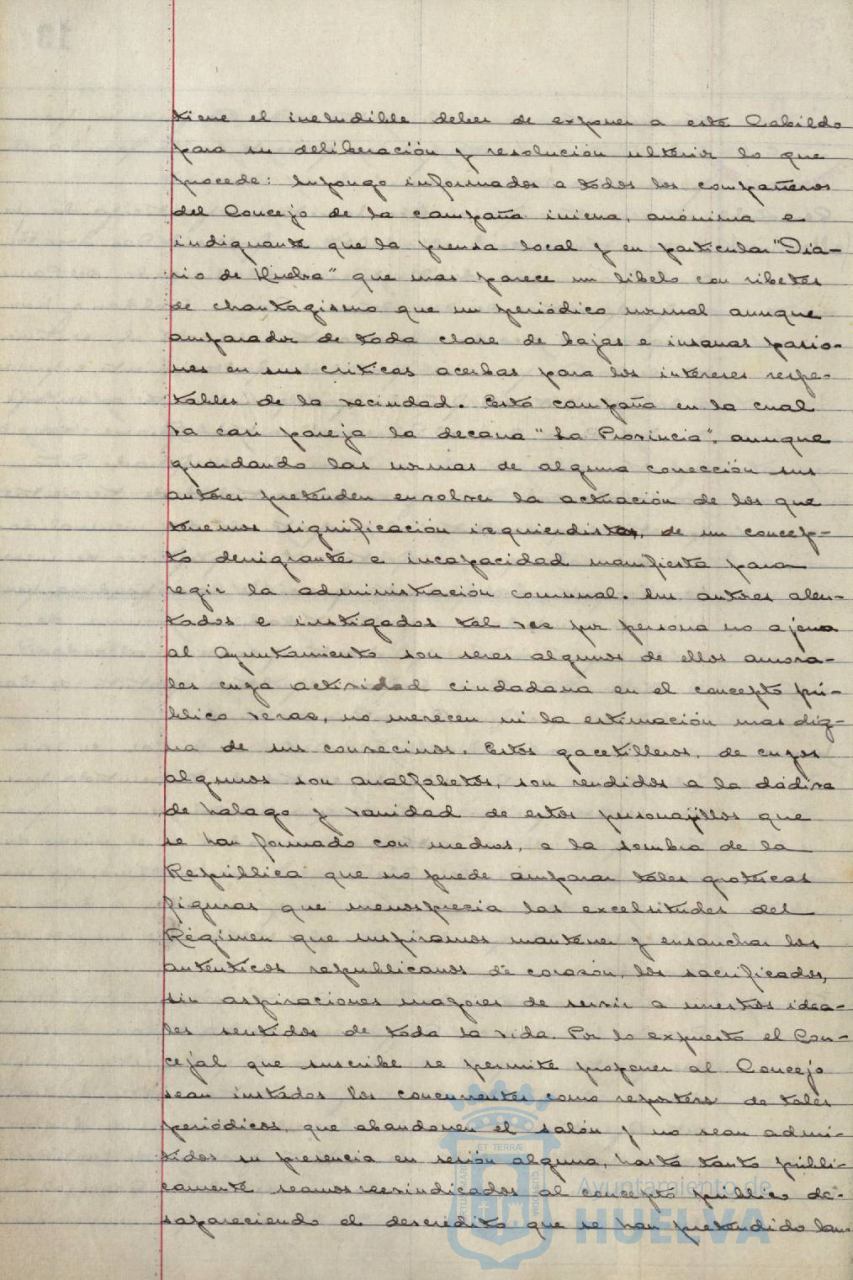 tiene el ineludible deber de exponer a este Cabildo
para su deliberación y resolución ulterior lo que
procede: Supongo informados a todos los compañeros
del Concejo de la campaña inicua, anónima e
indignante que la prensa local y en particular "Dia-
rio de Huelva" que mas parece un libelo con ribetes
de chantagismo que un periódico normal aunque
amparador de toda clase de bajas e insanas pasio-
nes en sus criticas acerbas para los intereses respe-
tables de la vecindad. Esta campaña en la cual
va casi pareja la decana "La Provincia", aunque
guardando las normas de alguna corrección sus
autores pretenden envolver la actuación de los que
tenemos significación izquierdista, de un concep-
to denigrante e incapacidad manifiesta para
regir la administración comunal. Sus autores alen-
tados e instigados tal vez por persona no ajena
al Ayuntamiento son seres algunos de ellos amora-
les cuya actividad ciudadana en el concepto pú-
blico veraz, no merecen ni la estimación mas dig-
na de sus convecinos. Estos gacetilleros, de cuyos
algunos son analfabetos, son vendidos a la dádiva
de halago y vanidad de estos personajillos que
se han formado con medios, a la sombra de la
República que no puede amparar tales grotescas
figuras que menosprecia las excelsitudes del
Régimen que suspiramos mantener y ensanchar los
auténticos republicanos de corazón, los sacrificados,
sin aspiraciones mayores de servir a nuestros idea-
les sentidos de toda la vida. Por lo expuesto el Con-
cejal que suscribe se permite proponer al Concejo
sean instados los concurrentes como reporters de tales
periódicos, que abandonen el salón y no sean admi-
tidos su presencia en sesión alguna, hasta tanto públi-
camente seamos reivindicados al concepto público de-
sapareciendo el descrédito que se han pretendido lan-
ET TERRÆ
Ayuntamiento de
HUELVA